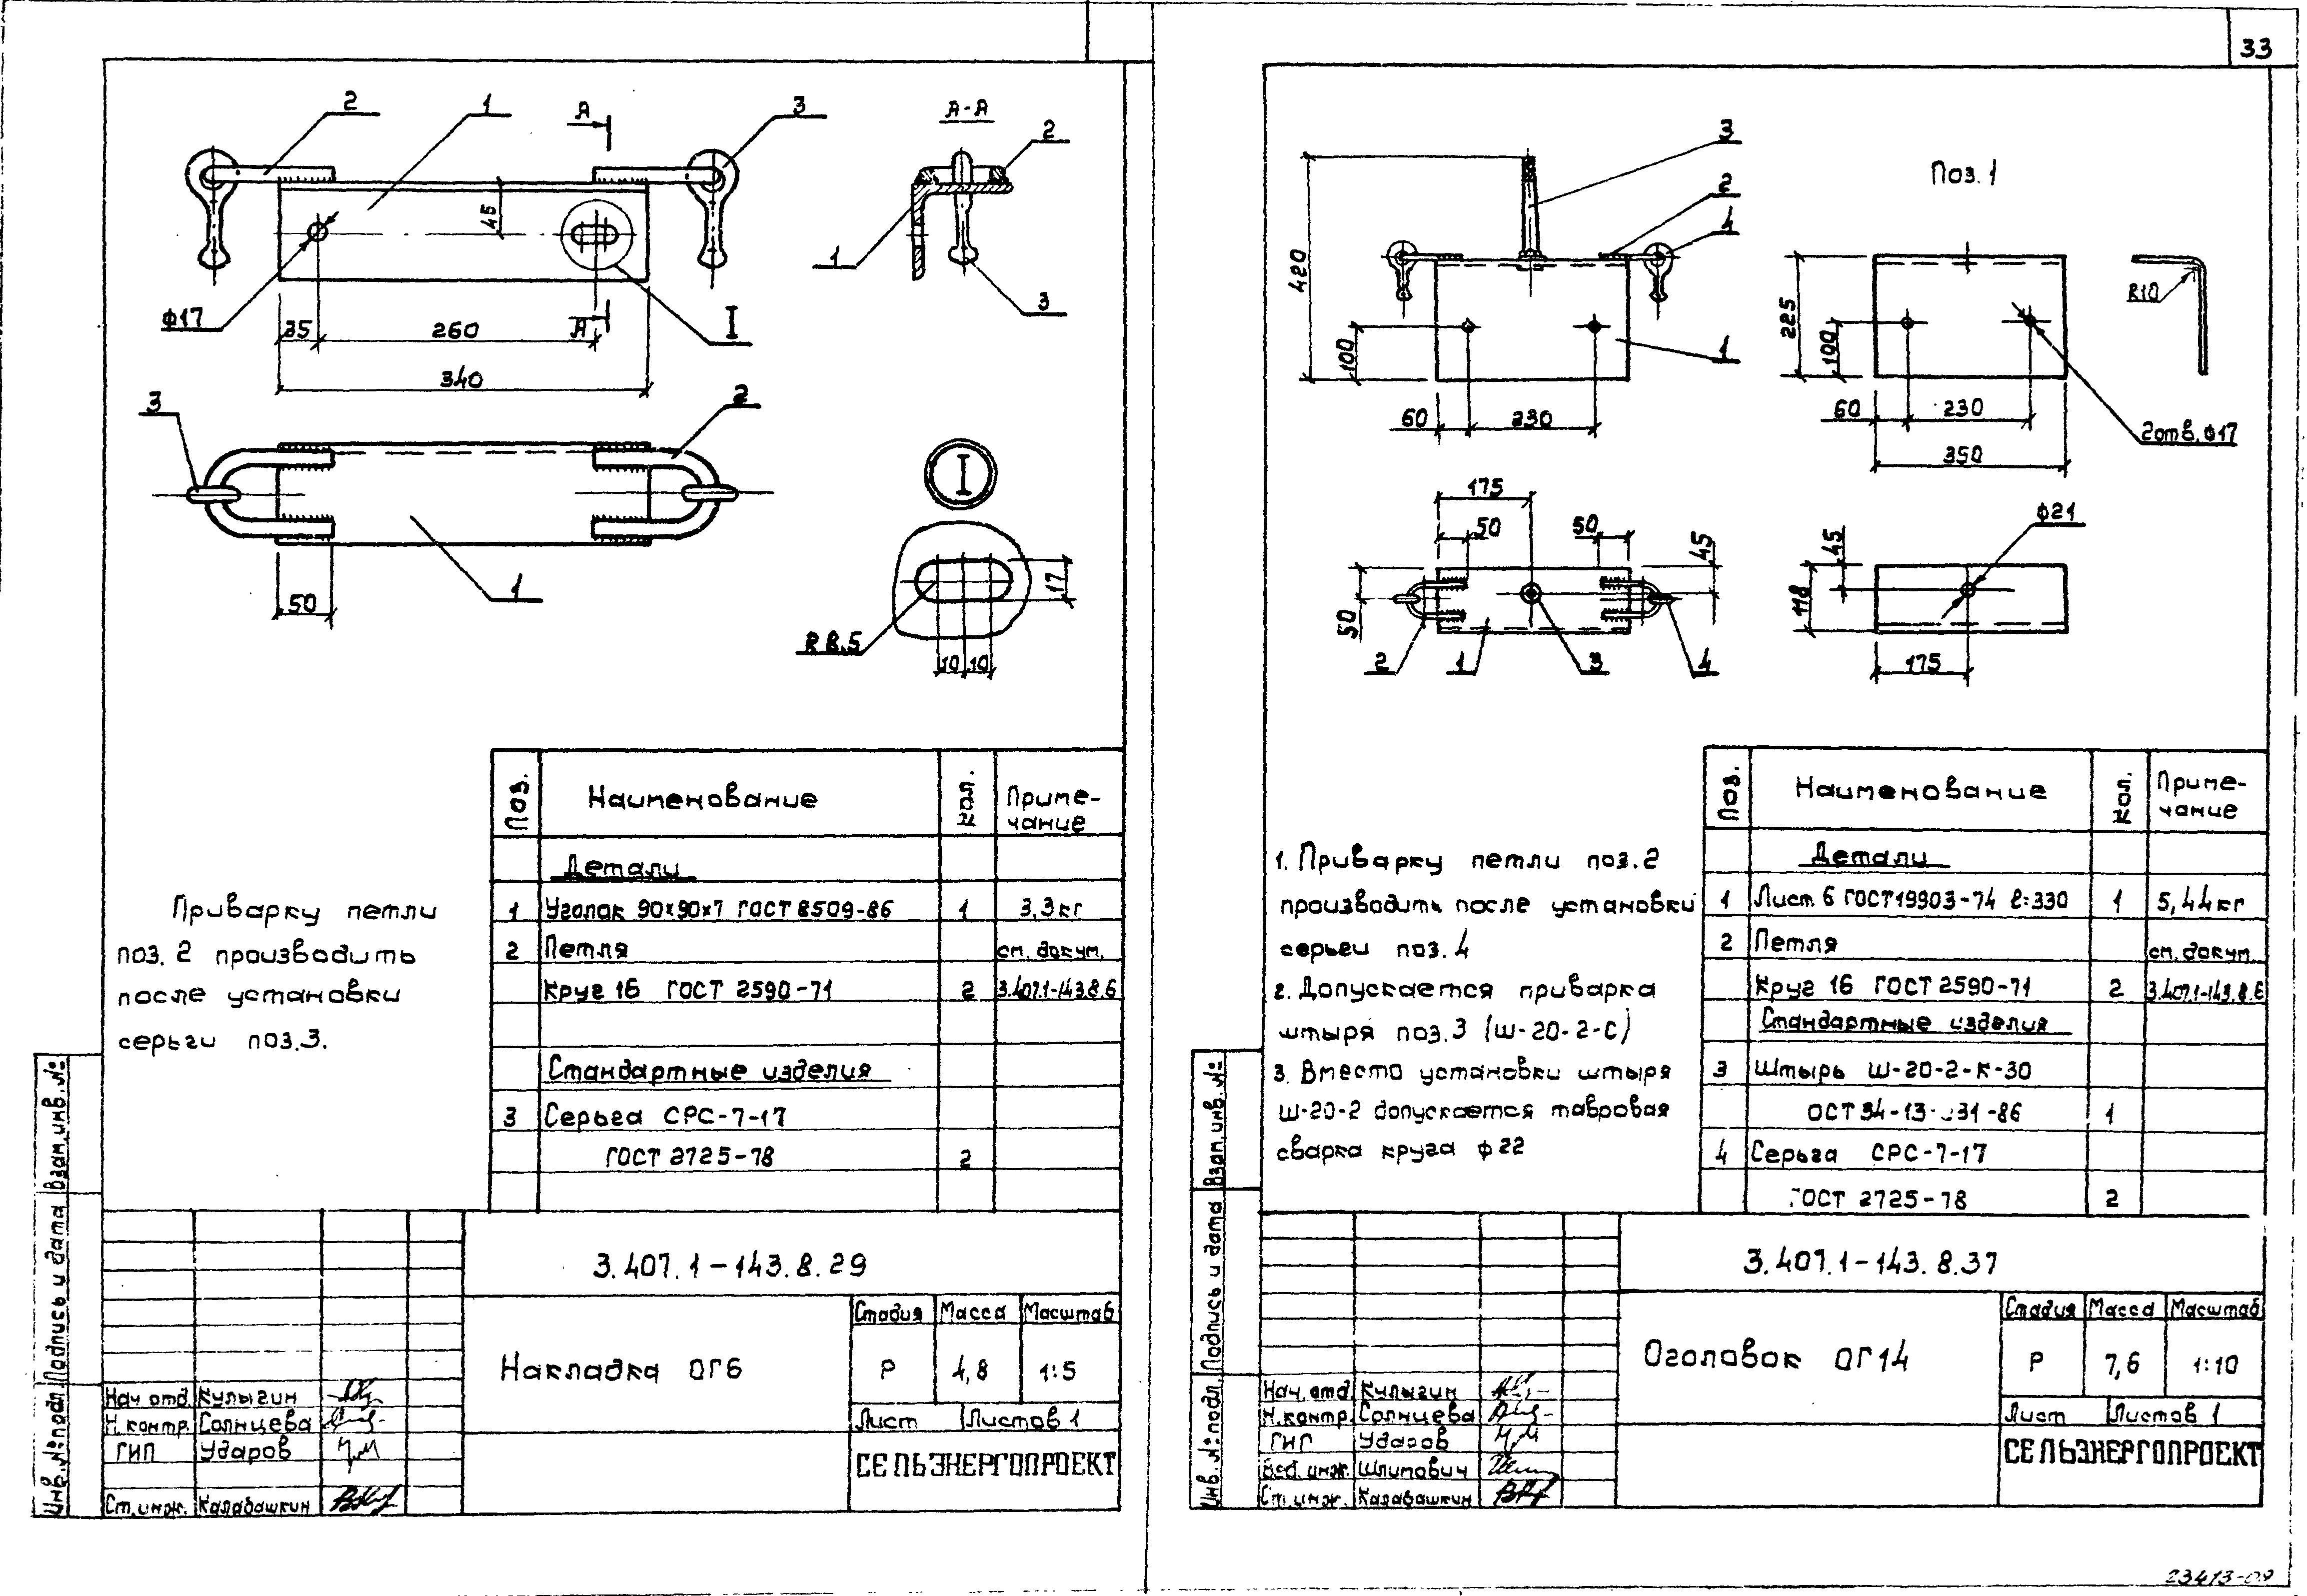 33
2
1
А
3
А-А
2
45
1
3
ф17
35
260
А
I
340
3
2
I
50
1
17
R 8.5
10
10
Поз.
Наименование
Кол.
Приме-
чание
Детали
1 Уголок 90х90х7 ГОСТ 8509-86 1 3,3кг
2 Петля см. докум.
Круг 16 ГОСТ 2590-71 2 3.407.1-143.8.6
Стандартные изделия
3 Серьга СРС-7-17
ГОСТ 2725-78 2
Приварку петли
поз. 2 производить
после установки
серьги поз.3.
3.407.1-143.8.29
Накладка ОГ6
Стадия Масса Масштаб
Р 4,8 1:5
Лист Листов 1
СЕЛЬЭНЕРГОПРОЕКТ
Нач. отд. Кулыгин
Н. контр. Солнцева
ГИП Ударов
Ст. инж. Калабашкин
Взам. инв. №
Подпись и дата
Инв. № подл.
3
2
4
1
420
100
60
230
Поз. 1
225
100
60
230
350
R10
2 отв. ф17
175
50
50
45
50
2
1
3
4
ф21
45
118
175
Поз.
Наименование
Кол.
Приме-
чание
Детали
1 Лист 6 ГОСТ 19903-74 ℓ=330 1 5,44кг
2 Петля см. докум.
Круг 16 ГОСТ 2590-71 2 3.407.1-143.8.6
Стандартные изделия
3 Штырь Ш-20-2-К-30
ОСТ 34-13- 31-86 1
4 Серьга СРС-7-17
ГОСТ 2725-78 2
1. Приварку петли поз. 2
производить после установки
серьги поз. 4
2. Допускается приварка
штыря поз. 3 (Ш-20-2-С)
3. Вместо установки штыря
Ш-20-2 допускается тавровая
сварка круга ф22
3.407.1-143.8.37
Оголовок ОГ14
Стадия Масса Масштаб
Р 7,6 1:10
Лист Листов 1
СЕЛЬЭНЕРГОПРОЕКТ
Нач. отд. Кулыгин
Н. контр. Солнцева
ГИП Ударов
Вед. инж. Шлипович
Ст. инж. Калабашкин
Взам. инв. №
Подпись и дата
Инв. № подл.
23413-09